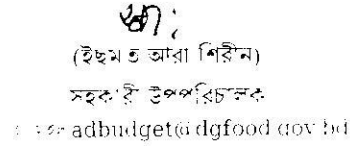 স্বা:
(ইছমত আরা শিরীন)
সহকারী উপপরিচালক
adbudget@dgfood.gov.bd